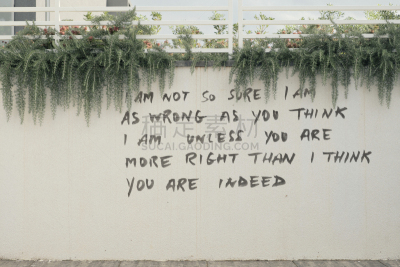 I AM NOT SO SURE I AM
AS WRONG AS YOU THINK
I AM UNLESS YOU ARE
MORE RIGHT THAN I THINK
YOU ARE INDEED
搞定素材
SUCAI.GAODING.COM